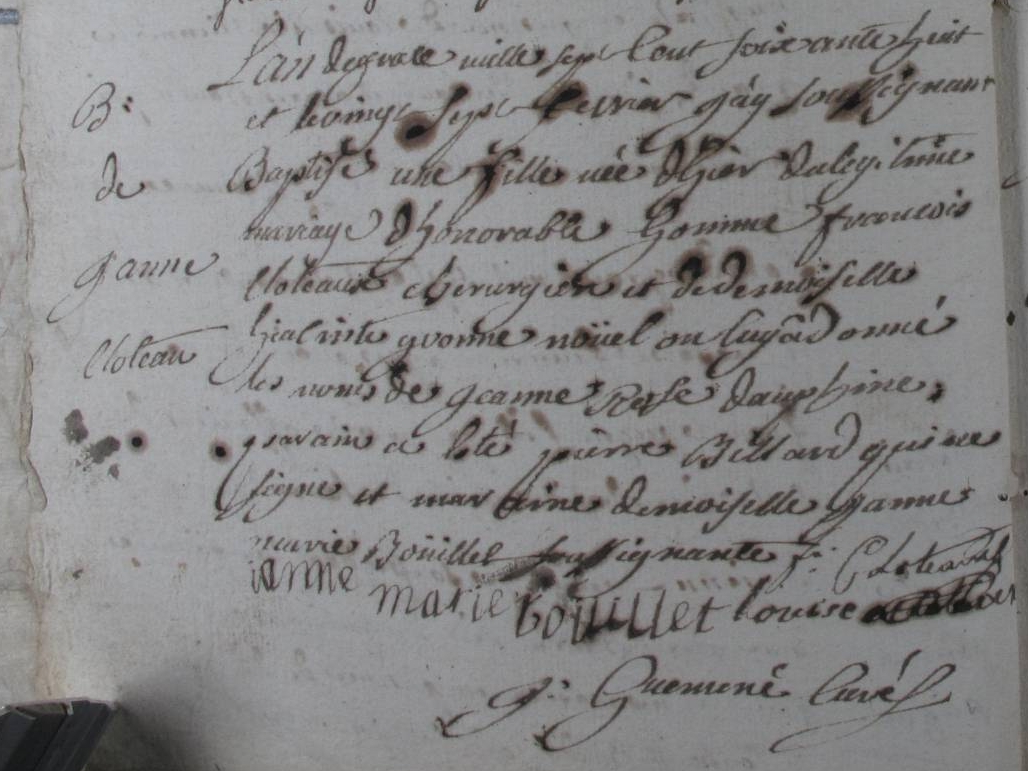 L'an degrace mille sept cent soixante huit
B:
et le vingt sept fevrier gay soussignant
de
Baptisé une fille née d'hier de legitime
mariage d'honorable homme francois
ganne
Cloteaux cherurgien et de demoiselle
hiacinte yvonne noüel on luy a donné
Cloteau
les noms de Jeanne Rose dauphine,
parain a eté pierre Billard qui ne
signe et maraine demoiselle ganne
marie Boüillet soussignante f: Cloteaux
ianne marie boüillet louise
g: Guemené Curé